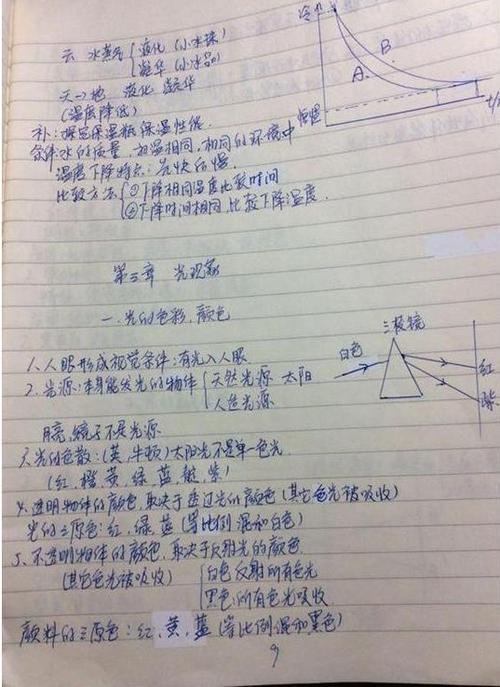 云 水蒸气 { 液化 (小水珠)
凝华 (小冰晶)
天→地 液化 凝华
(温度降低)
补: 探究保温瓶保温性能.
条件: 水的质量, 初温相同, 相同的环境中
温度下降特点: 先快后慢.
比较方法 { ①下降相同温度比较时间
②下降时间相同, 比较下降温度.
A
B
室温
第三章 光现象
一. 光的色彩, 颜色
1. 人眼形成视觉条件: 有光入人眼
2. 光源: 本身能发光的物体 { 天然光源 太阳
人造光源
月亮, 镜子不是光源
三棱镜
白色
红
紫
3. 光的色散: (英, 牛顿) 太阳光不是单一色光
(红, 橙, 黄, 绿, 蓝, 靛, 紫)
4. 透明物体的颜色, 取决于透过光的颜色 (其它色光被吸收)
光的三原色: 红, 绿, 蓝 (等比例混和白色)
5. 不透明物体的颜色, 取决于反射光的颜色.
(其它色光被吸收) { 白色反射所有色光
黑色: 所有色光吸收
颜料的三原色: 红, 黄, 蓝 (等比例混和黑色)
9